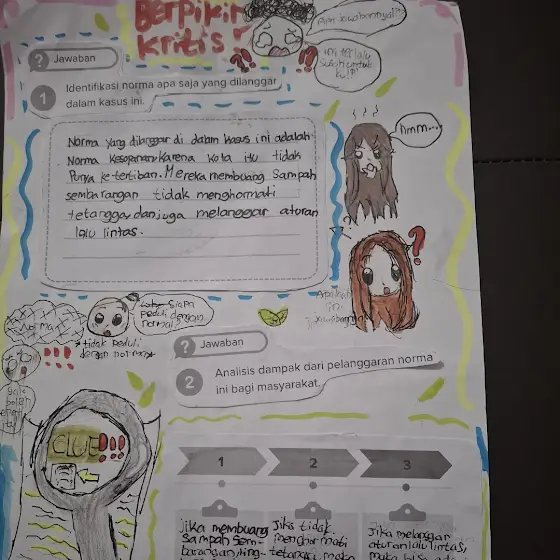 BerpikIr
kritis!
Jawaban
1
Identifikasi norma apa saja yang dilanggar
dalam kasus ini.
Norma yang dilanggar di dalam kasus ini adalah
Norma kesopanan karena kota itu tidak
Punya ketertiban. Mereka membuang sampah
sembarangan tidak menghormati
tetangga, dan juga melanggar aturan
lalu lintas.
ini terlalu
susah untuk
hmm...
Siapa
Peduli dengan
norma!
Norma
tidak Peduli
dengan norma
CLUE!!!
Jawaban
2
Analisis dampak dari pelanggaran norma
ini bagi masyarakat.
1
2
3
Jika membuang
sampah sem-
Jika tidak
menghormati
Jika melanggar
aturan lalu lintas,